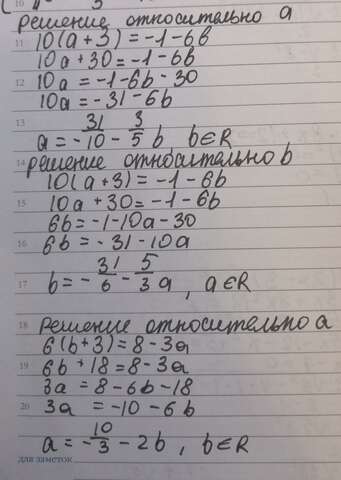 10
решение относительно a
11
10(a+3) = -1-6b
10a+30=-1-6b
12
10a = -1-6b-30
10a = -31-6b
13
a = -31/10 - 3/5 b b∈R
14
решение относительно b
10(a+3) = -1-6b
15
10a+30=-1-6b
6b=-1-10a-30
16
6b = -31-10a
17
b = -31/6 - 5/3 a , a∈R
18
Решение относительно a
6(b+3)=8-3a
19
6b+18=8-3a
3a=8-6b-18
20
3a =-10-6b
a = -10/3 -2b , b∈R
для заметок